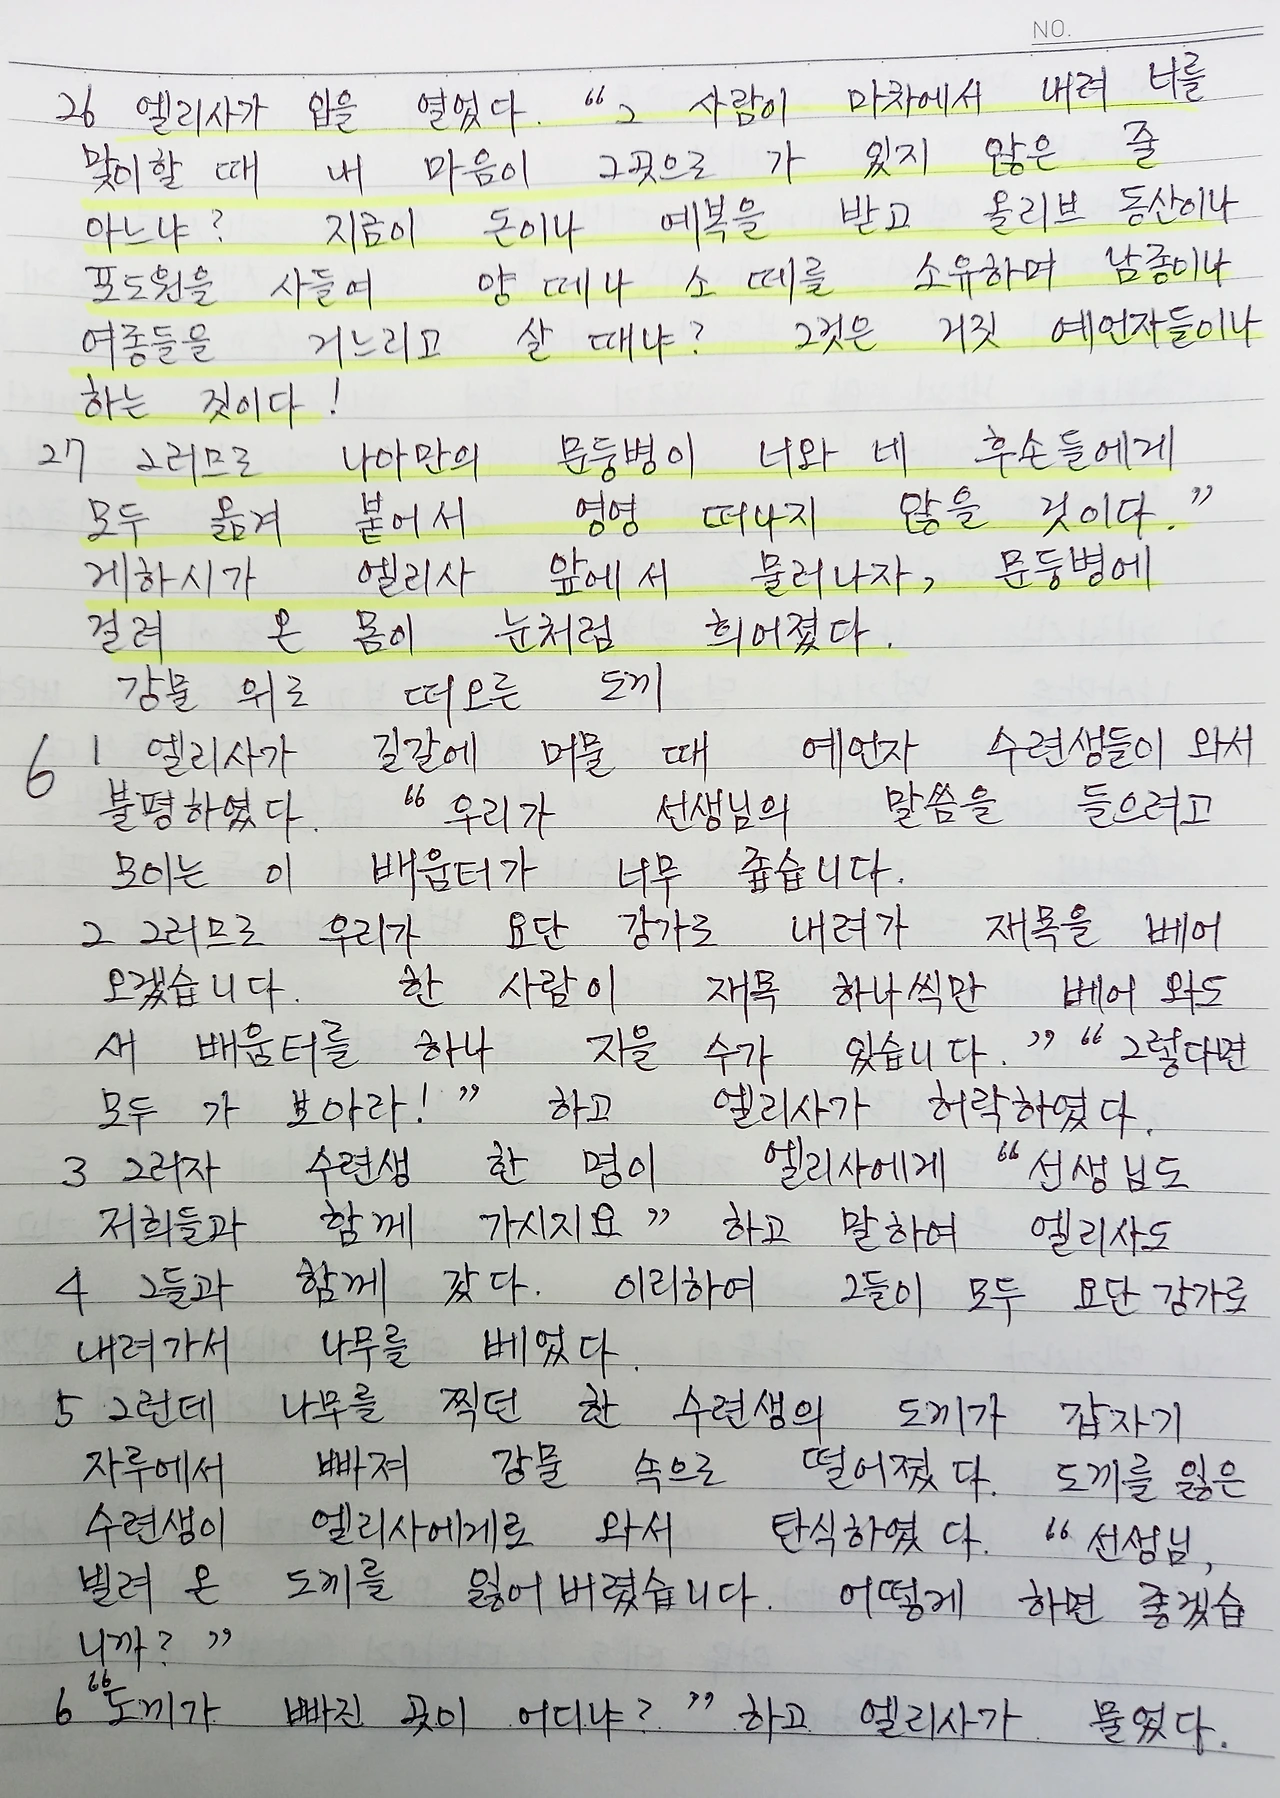 NO.
26 엘리사가 입을 열었다. “그 사람이 마차에서 내려 너를
맞이할 때 내 마음이 그곳으로 가 있지 않은 줄
아느냐? 지금이 돈이나 예복을 받고 올리브 동산이나
포도원을 사들여 양 떼나 소 떼를 소유하며 남종이나
여종들을 거느리고 살 때냐? 그것은 거짓 예언자들이나
하는 짓이다!
27 그러므로 나아만의 문둥병이 너와 네 후손들에게
모두 옮겨 붙어서 영영 떠나지 않을 것이다.”
게하시가 엘리사 앞에서 물러나자, 문둥병에
걸려 온 몸이 눈처럼 희어졌다.
강물 위로 떠오른 도끼
6 1 엘리사가 길갈에 머물 때 예언자 수련생들이 와서
불평하였다. “우리가 선생님의 말씀을 들으려고
모이는 이 배움터가 너무 좁습니다.
2 그러므로 우리가 요단 강가로 내려가 재목을 베어
오겠습니다. 한 사람이 재목 하나씩만 베어 와도
새 배움터를 하나 지을 수가 있습니다.” “그렇다면
모두 가 보아라!” 하고 엘리사가 허락하였다.
3 그러자 수련생 한 명이 엘리사에게 “선생님도
저희들과 함께 가시지요” 하고 말하여 엘리사도
4 그들과 함께 갔다. 이리하여 그들이 모두 요단 강가로
내려가서 나무를 베었다.
5 그런데 나무를 찍던 한 수련생의 도끼가 갑자기
자루에서 빠져 강물 속으로 떨어졌다. 도끼를 잃은
수련생이 엘리사에게로 와서 탄식하였다. “선생님,
빌려 온 도끼를 잃어버렸습니다. 어떻게 하면 좋겠습
니까?”
6 “도끼가 빠진 곳이 어디냐?” 하고 엘리사가 물었다.